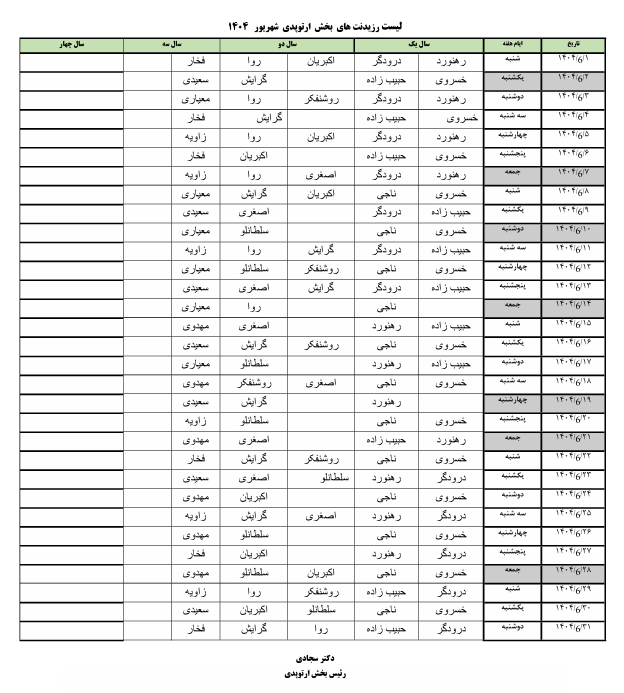 لیست رزیدنت های بخش ارتوپدی شهریور ۱۴۰۴
تاریخ ایام هفته سال یک سال دو سال سه سال چهار
۱۴۰۴/6/۱ شنبه رهنورد درودگر اکبریان روا فخار
۱۴۰۴/6/۲ یکشنبه خسروی حبیب زاده گرایش سعیدی
۱۴۰۴/6/۳ دوشنبه رهنورد درودگر روشنفکر روا معیاری
۱۴۰۴/6/۴ سه شنبه خسروی حبیب زاده گرایش فخار
۱۴۰۴/6/۵ چهارشنبه رهنورد درودگر اکبریان روا زاویه
۱۴۰۴/6/۶ پنجشنبه خسروی حبیب زاده اکبریان فخار
۱۴۰۴/6/۷ جمعه رهنورد درودگر اصغری روا زاویه
۱۴۰۴/6/۸ شنبه خسروی ناجی اکبریان گرایش معیاری
۱۴۰۴/6/۹ یکشنبه حبیب زاده درودگر اصغری سعیدی
۱۴۰۴/6/۱۰ دوشنبه خسروی ناجی سلطانلو معیاری
۱۴۰۴/6/۱۱ سه شنبه حبیب زاده درودگر گرایش روا زاویه
۱۴۰۴/6/۱۲ چهارشنبه خسروی ناجی روشنفکر سلطانلو معیاری
۱۴۰۴/6/۱۳ پنجشنبه حبیب زاده درودگر گرایش اصغری سعیدی
۱۴۰۴/6/۱۴ جمعه ناجی روا معیاری
۱۴۰۴/6/۱۵ شنبه حبیب زاده رهنورد اصغری مهدوی
۱۴۰۴/6/۱۶ یکشنبه خسروی ناجی روشنفکر گرایش سعیدی
۱۴۰۴/6/۱۷ دوشنبه حبیب زاده رهنورد سلطانلو معیاری
۱۴۰۴/6/۱۸ سه شنبه خسروی ناجی اصغری روشنفکر مهدوی
۱۴۰۴/6/۱۹ چهارشنبه رهنورد گرایش سعیدی
۱۴۰۴/6/۲۰ پنجشنبه خسروی ناجی سلطانلو زاویه
۱۴۰۴/6/۲۱ جمعه رهنورد حبیب زاده اصغری مهدوی
۱۴۰۴/6/۲۲ شنبه خسروی ناجی روشنفکر گرایش فخار
۱۴۰۴/6/۲۳ یکشنبه درودگر رهنورد سلطانلو اصغری سعیدی
۱۴۰۴/6/۲۴ دوشنبه خسروی ناجی اکبریان مهدوی
۱۴۰۴/6/۲۵ سه شنبه درودگر رهنورد اصغری گرایش زاویه
۱۴۰۴/6/۲۶ چهارشنبه خسروی ناجی سلطانلو مهدوی
۱۴۰۴/6/۲۷ پنجشنبه درودگر رهنورد اکبریان فخار
۱۴۰۴/6/۲۸ جمعه خسروی ناجی اکبریان سلطانلو مهدوی
۱۴۰۴/6/۲۹ شنبه درودگر حبیب زاده روشنفکر روا زاویه
۱۴۰۴/6/۳۰ یکشنبه خسروی ناجی سلطانلو اکبریان سعیدی
۱۴۰۴/6/۳۱ دوشنبه درودگر حبیب زاده روا گرایش فخار
دکتر سجادی
رئیس بخش ارتوپدی